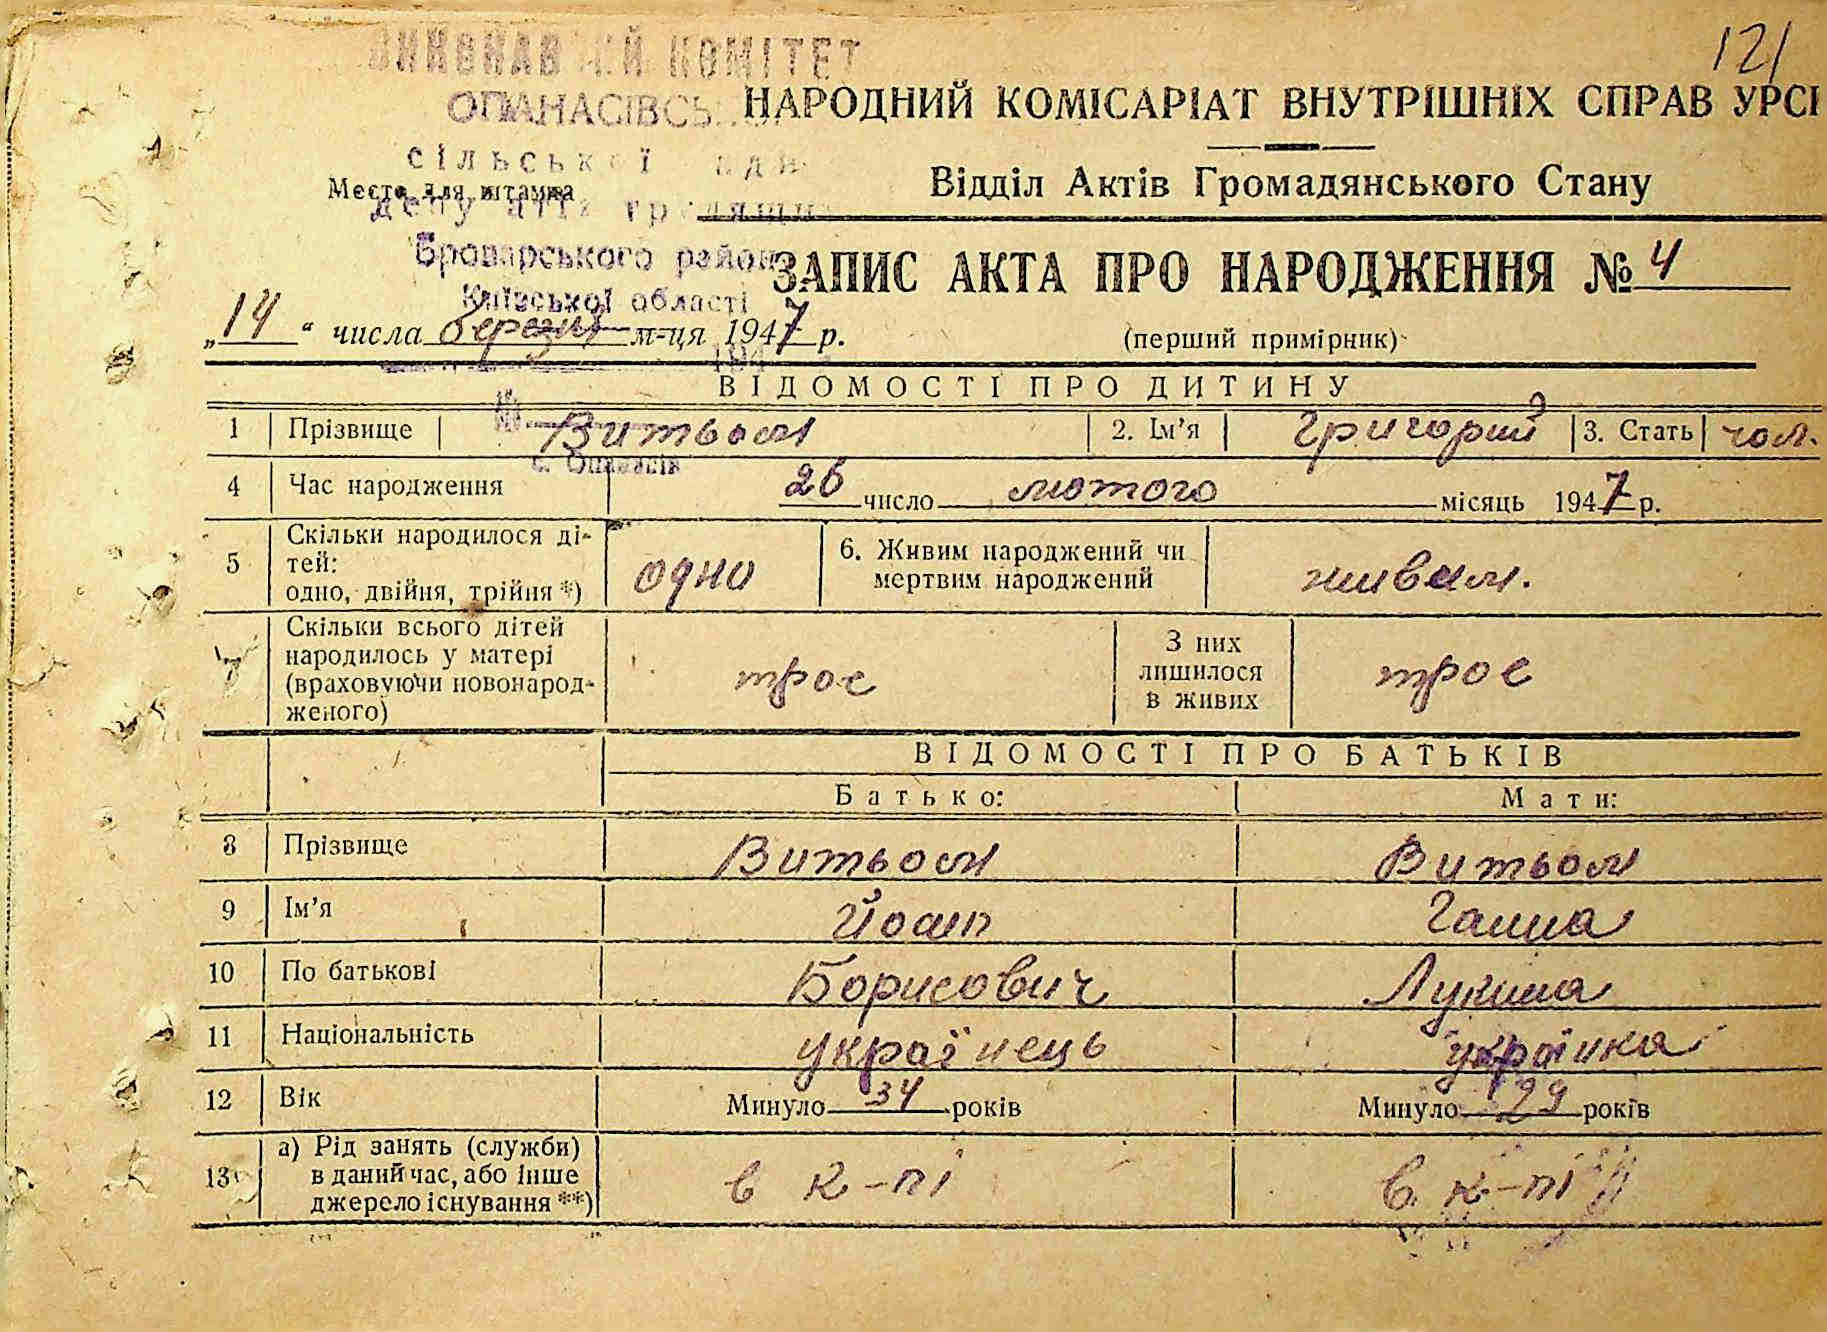 121
КОМІТЕТ
ОПАНАСІВСЬ
НАРОДНИЙ КОМІСАРІАТ ВНУТРІШНІХ СПРАВ УРСР
сільської
Место для штампа
Відділ Актів Громадянського Стану
Броварського району
ЗАПИС АКТА ПРО НАРОДЖЕННЯ № 4
Київської області
„14“ числа березня м-ця 1947 р.
(перший примірник)
194
ВІДОМОСТІ ПРО ДИТИНУ
№
1 Прізвище Витьом 2. Ім’я Григорий 3. Стать чол.
с. Опанасів
4 Час народження 26 число лютого місяць 1947 р.
5 Скільки народилося ді-
тей:
одно, двійня, трійня *) одно 6. Живим народжений чи
мертвим народжений живим.
7 Скільки всього дітей
народилось у матері
(враховуючи новонарод-
женого) троє З них
лишилося
в живих троє
ВІДОМОСТІ ПРО БАТЬКІВ
Батько: Мати:
8 Прізвище Витьом Витьом
9 Ім’я Йоап Ганна
10 По батькові Борисович Лукинна
11 Національність українець українка
12 Вік Минуло 34 років Минуло 29 років
13 а) Рід занять (служби)
в даний час, або інше
джерело існування **) в к-пі в к-пі